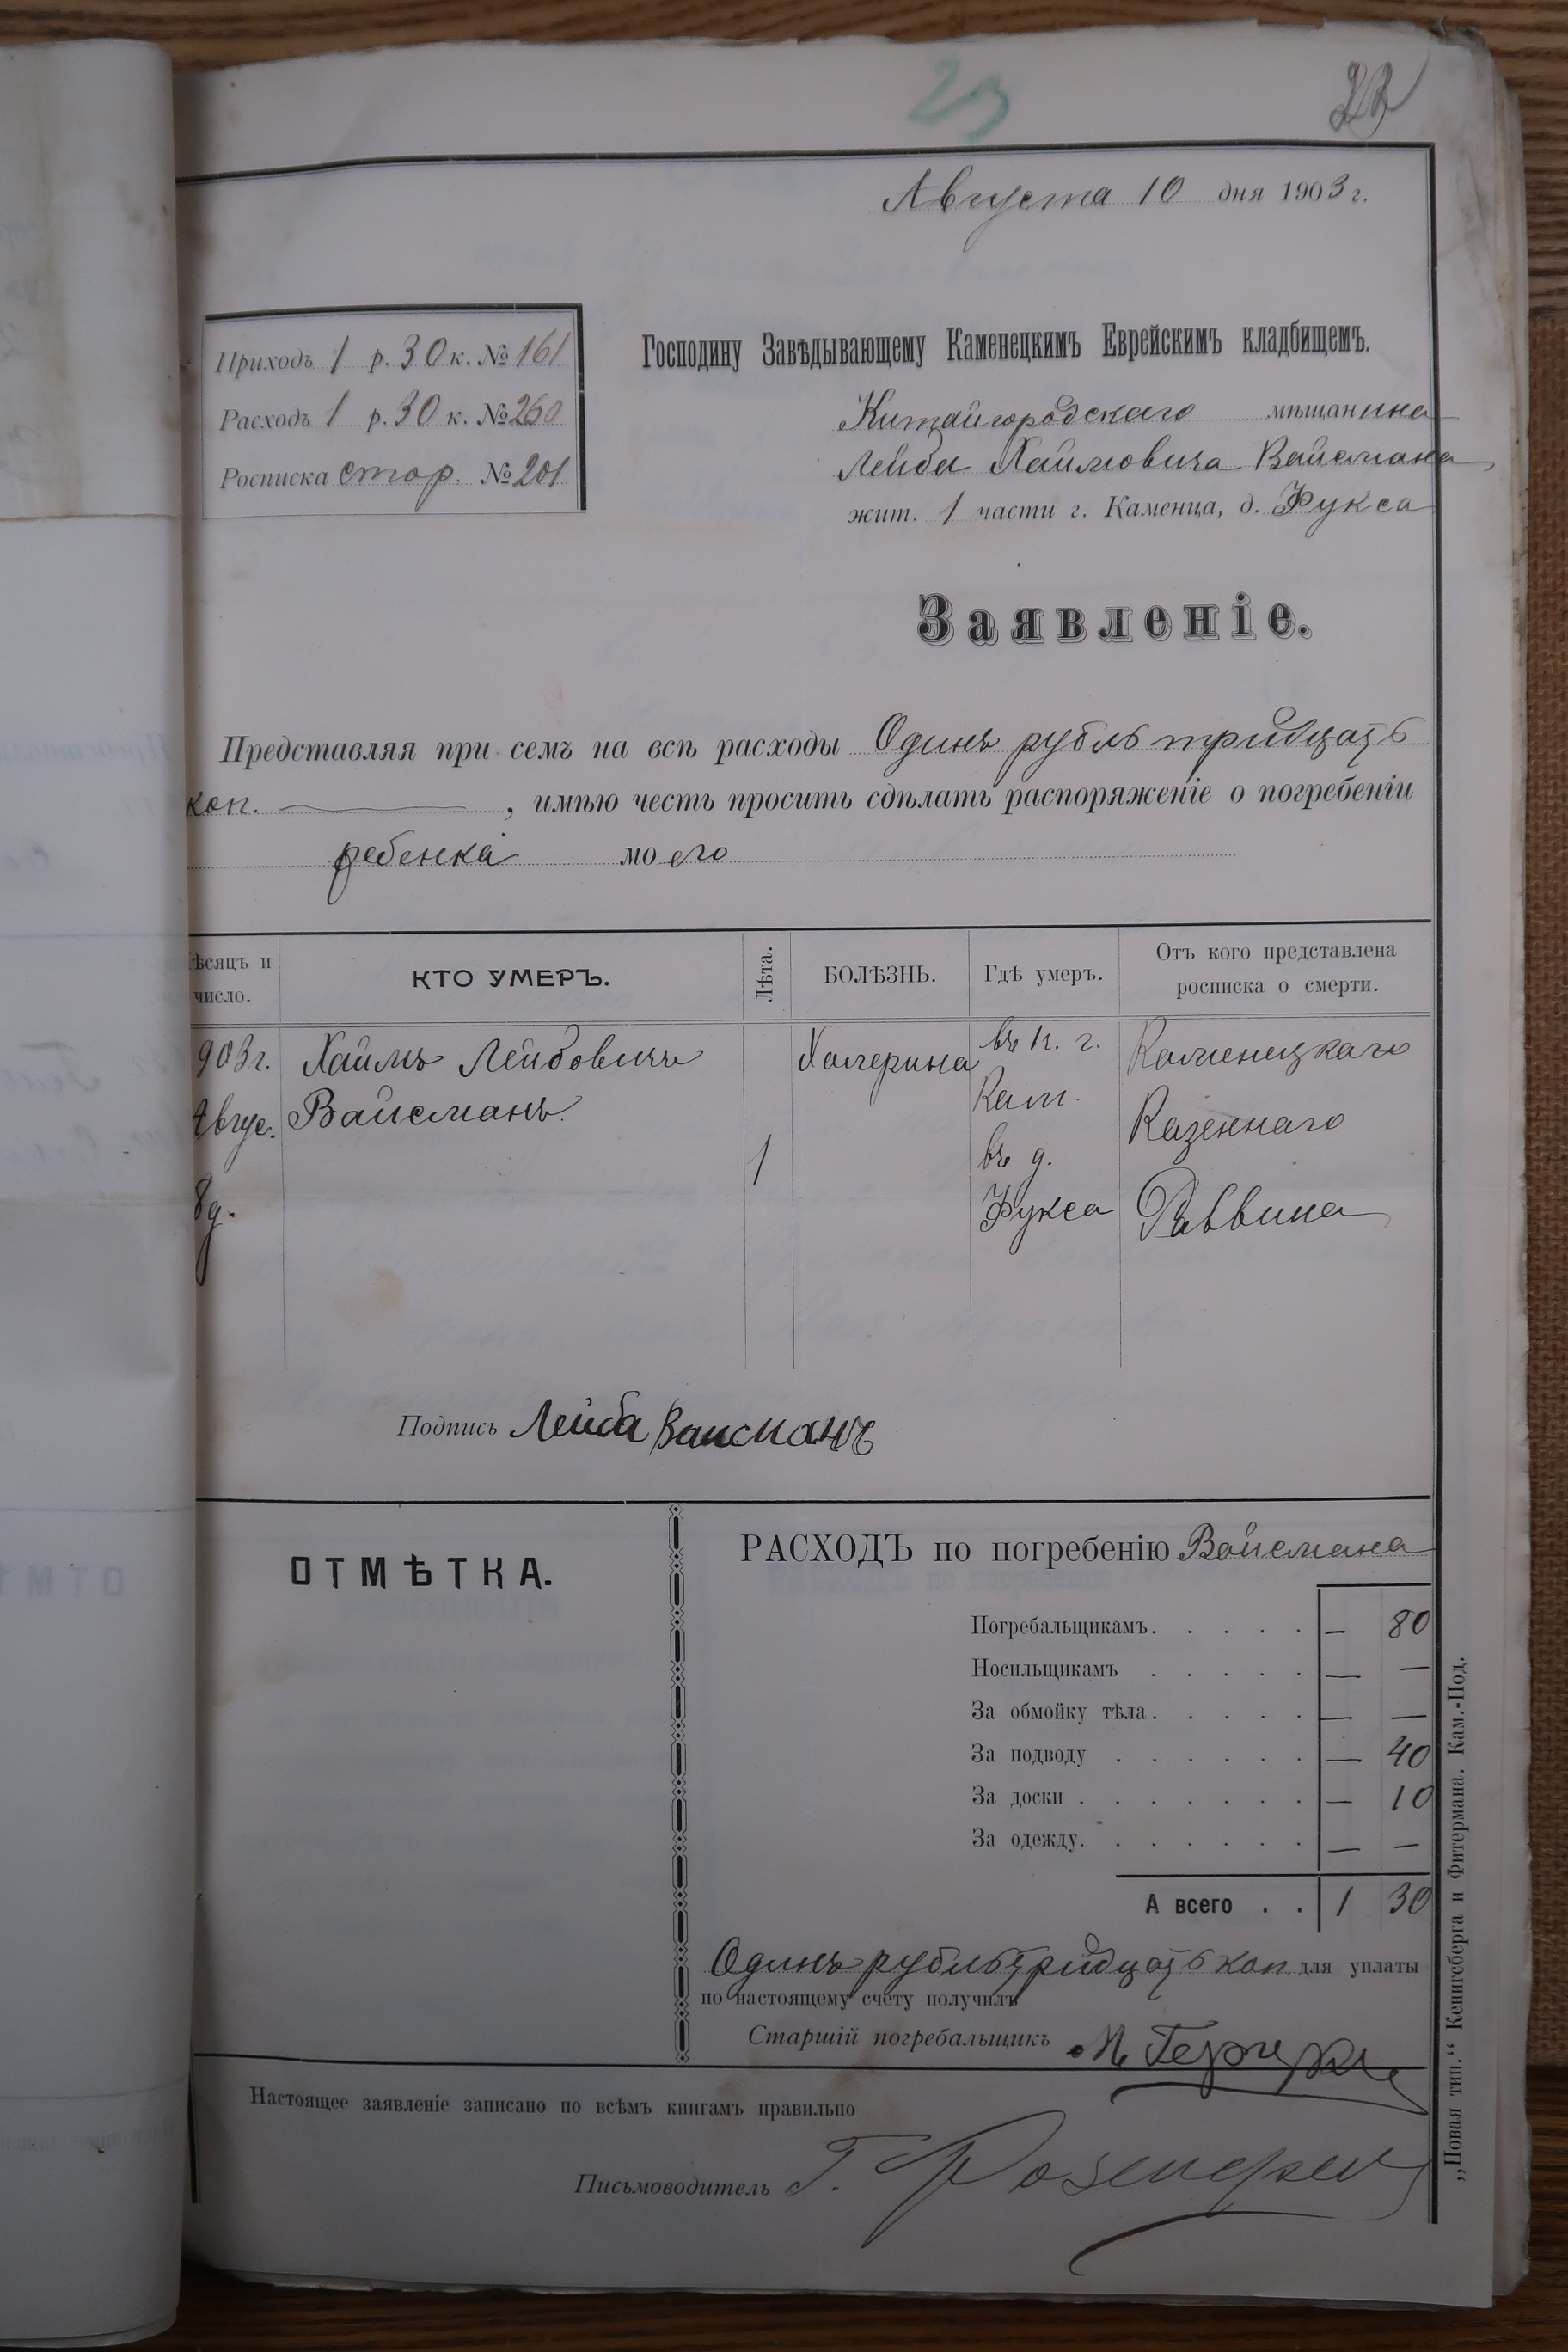 23
Августа 10 дня 1903 г.
Приходъ 1 р. 30 к. № 161
Расходъ 1 р. 30 к. № 260
Росписка стор. № 201
Господину Завѣдывающему Каменецкимъ Еврейскимъ кладбищемъ.
Китайгородскаго мѣщанина
Лейбы Хаимовича Вайсмана
жит. 1 части г. Каменца, д. Фукса
Заявленіе.
Представляя при семъ на всѣ расходы Одинъ рубль тридцать
коп. , имѣю честь просить сдѣлать распоряженіе о погребеніи
ребенка моего
ѣсяцъ и число.
КТО УМЕРЪ.
Лѣта.
БОЛѢЗНЬ.
Гдѣ умеръ.
Отъ кого представлена росписка о смерти.
903 г. Хаимъ Лейбовичъ Холерина въ п. г. Каменецкаго
Кам.
Авгус. Вайсманъ. Казеннаго
1 въ д.
8 д. Фукса Раввина
Подпись Лейба Вансманъ
ОТМѢТКА.
РАСХОДЪ по погребенію Вайсмана
Погребальщикамъ. . . . . — 80
Носильщикамъ . . . . . — —
За обмойку тѣла. . . . . — —
За подводу . . . . . . — 40
За доски . . . . . . . — 10
За одежду. . . . . . . — —
А всего . . 1 30
Одинъ рубль тридцать коп для уплаты
по настоящему счету получилъ
Старшій погребальщикъ
Настоящее заявленіе записано по всѣмъ книгамъ правильно
Письмоводитель Г.
„Новая тип.“ Кенигсберга и Фитермана. Кам.-Под.